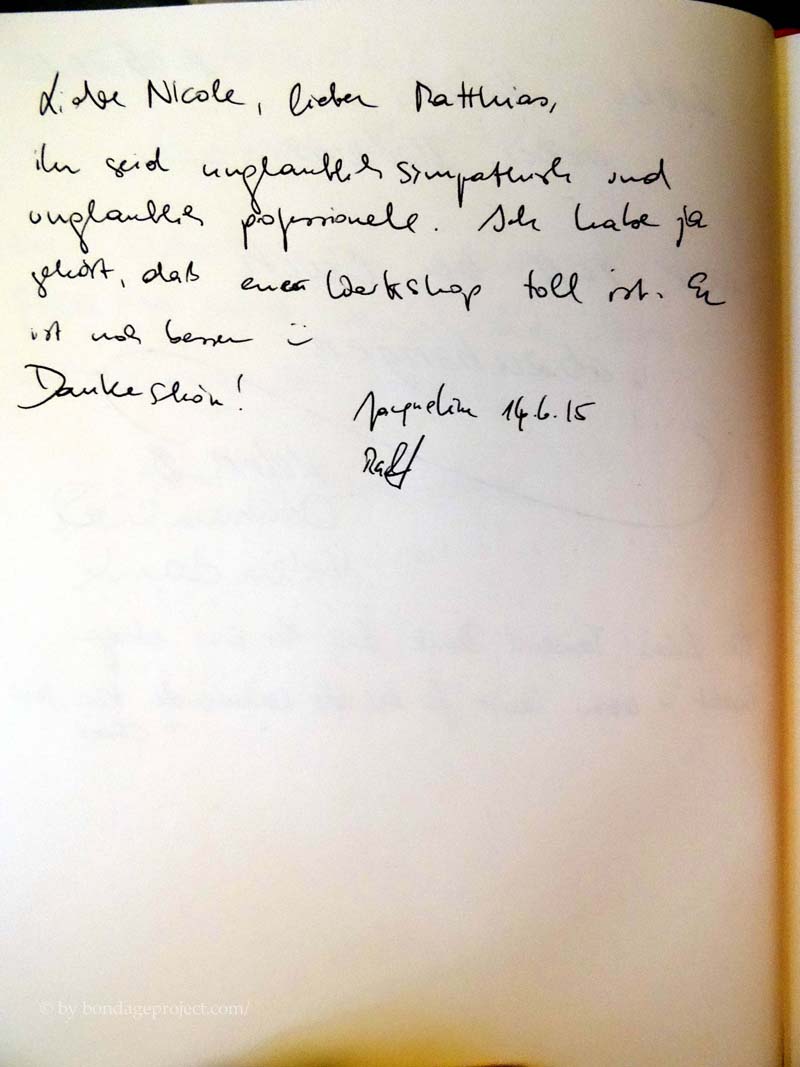 Liebe Nicole, lieber Matthias,
ihr seid unglaublich sympathisch und
unglaublich professionell. Ich habe ja
gehört, daß euer Workshop toll ist. Er
ist noch besser :)
Dankeschön!
Jacqueline 14.6.15
Ralf
© by bondageproject.com/